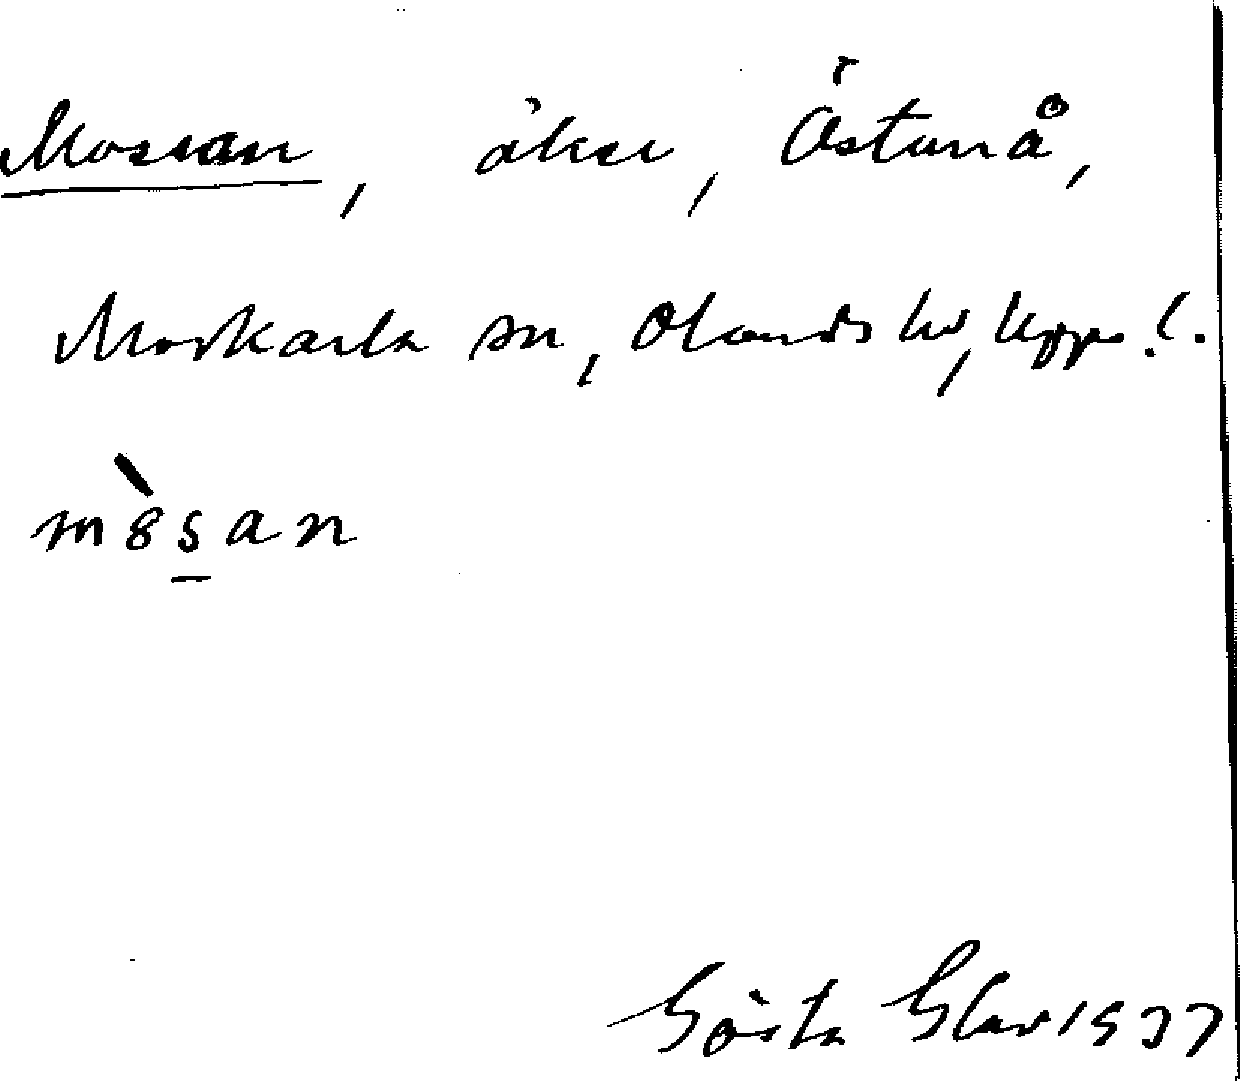 Mossan, åker, Östanå,
Morkarla sn, Olands hd, Upps. l.
mò̀8s̲an
Gösta Glav 1937